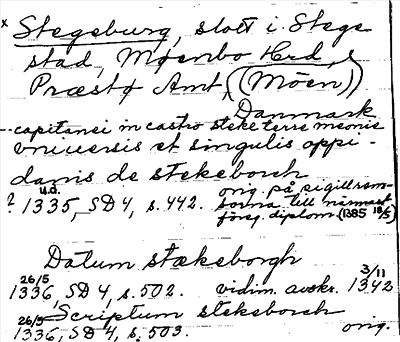 x Stegeburg, slott i Stege
stad, Mønbo Hrd,
Præstø Amt, (Möen)
Danmark
capitanei in castro steke terre meonis
vniuersis et singulis oppi-
danis de stekeborch
u.d. orig. på sigillrem-
? 1335, SD 4, s. 442. sorna till närmast
föreg. diplom (1335 18/5)
Datum stækeborgh
26/5 3/11
1336, SD 4, s. 502. vidim. avskr. 1342
Scriptum stekeborch
26/5
1336, SD 4, s. 503. orig.